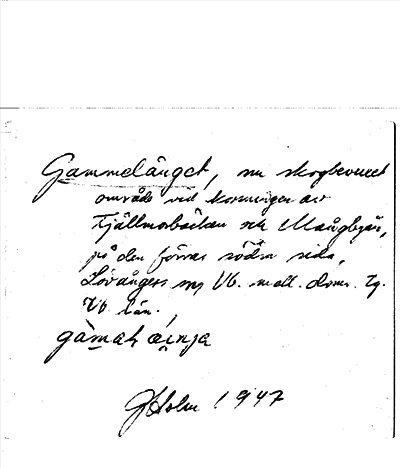 Gammelänget, nu skogbevuxet
område vid korsningen av
Fjällmorbäcken och
på den förras södra sida,
Lövångers sn, Vb. mell. doms. Tg.
Vb. län.
gàmaḷ æ̀i̯nja
GHolm 1947